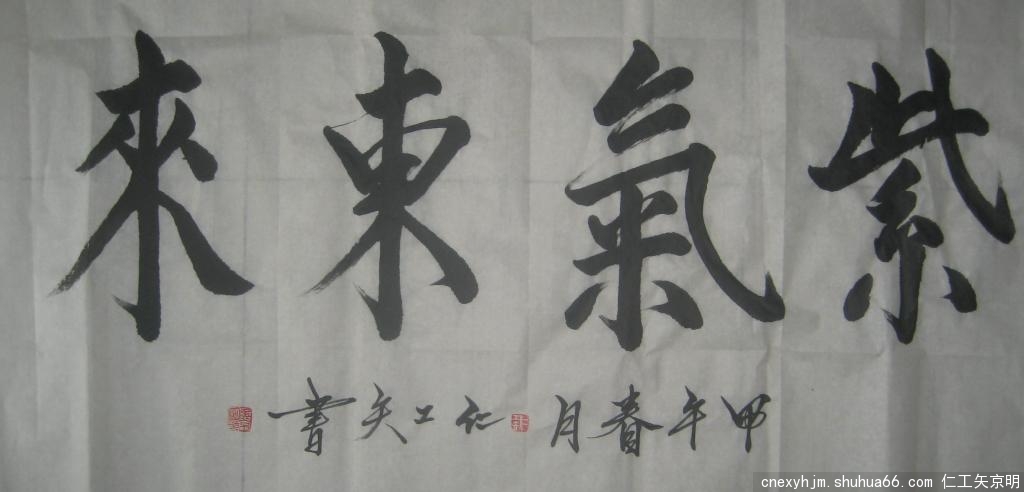 紫氣東來
甲午春月仁工矢書
cnexyhjm.shuhua66.com 仁工矢京明